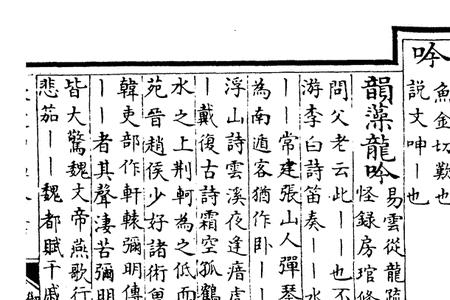 吟
魚金切歎也
說文呻丨也
韻藻龍吟
易雲從龍疏
怪錄房琯修
問父老云此丨丨也不
游李白詩笛奏丨丨水
丨丨常建張山人彈琴
為南遁客猶作卧丨丨
浮山詩雲溪夜逢瘖虎
丨戴復古詩霜空孤鶴
水之上荆軻為之低而
苑晉趙侯少好諸術魚
韓吏部作軒轅彌明傳
丨丨者其聲淒苦彌明
皆大驚魏文帝燕歌行
悲笳丨丨魏都賦干戚